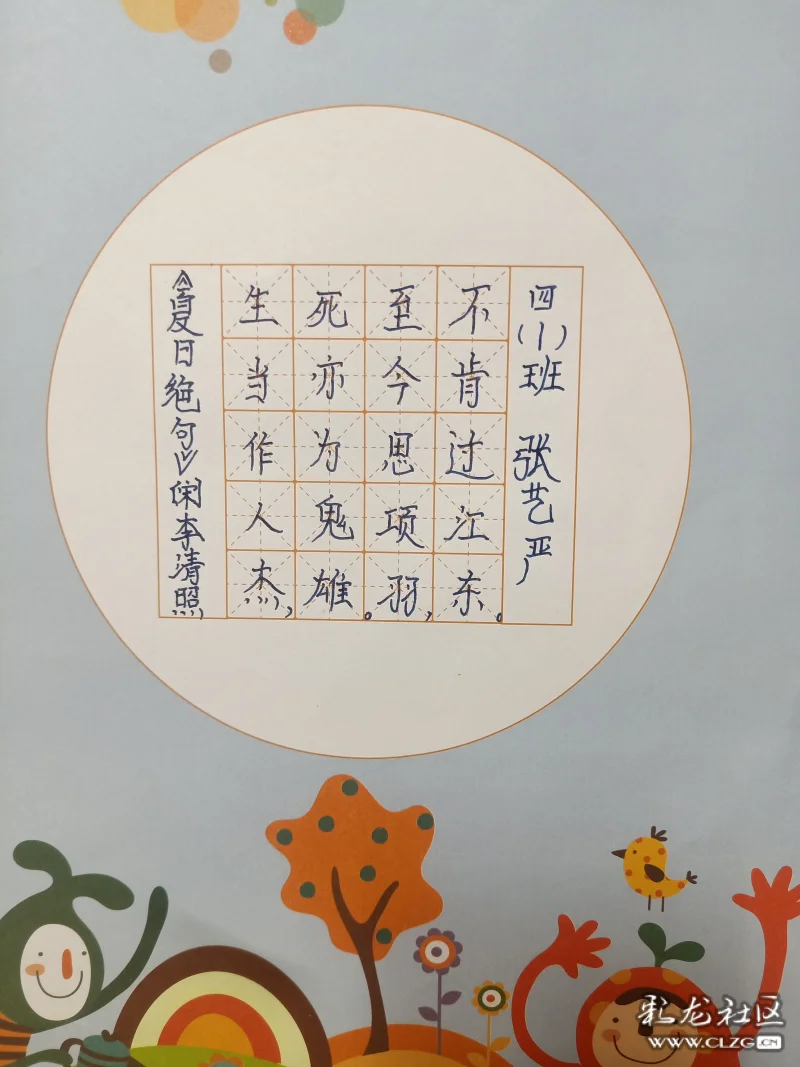 《夏日绝句》李清照
生当作人杰,
死亦为鬼雄。
至今思项羽,
不肯过江东。
四(1)班 张艺严
彩龙社区
WWW.CLZG.CN